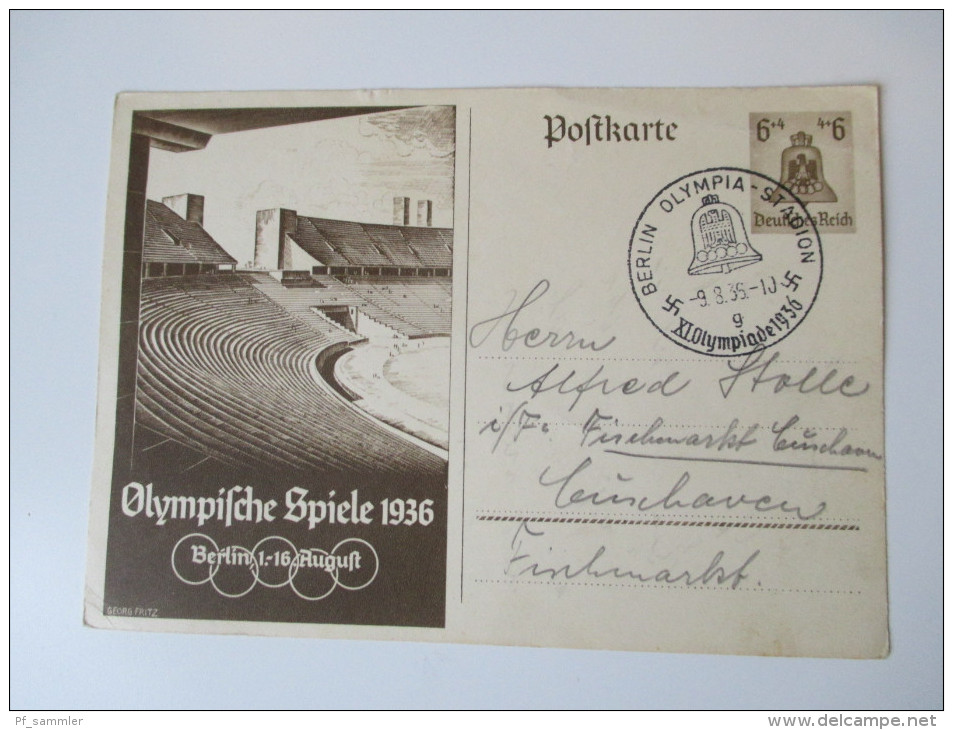 Poſtkarte
6+4 4+6
Deutſches Reich
BERLIN OLYMPIA-STADION
-9.8.36.-10
g
XI.Olympiade 1936
Herrn
Alfred Stolle
i/Fa. Fischmarkt Cuxhaven
Cuxhaven
Fischmarkt.
Olympiſche Spiele 1936
Berlin 1.-16. Auguſt
GEORG FRITZ
Pf_sammler
www.delcampe.net